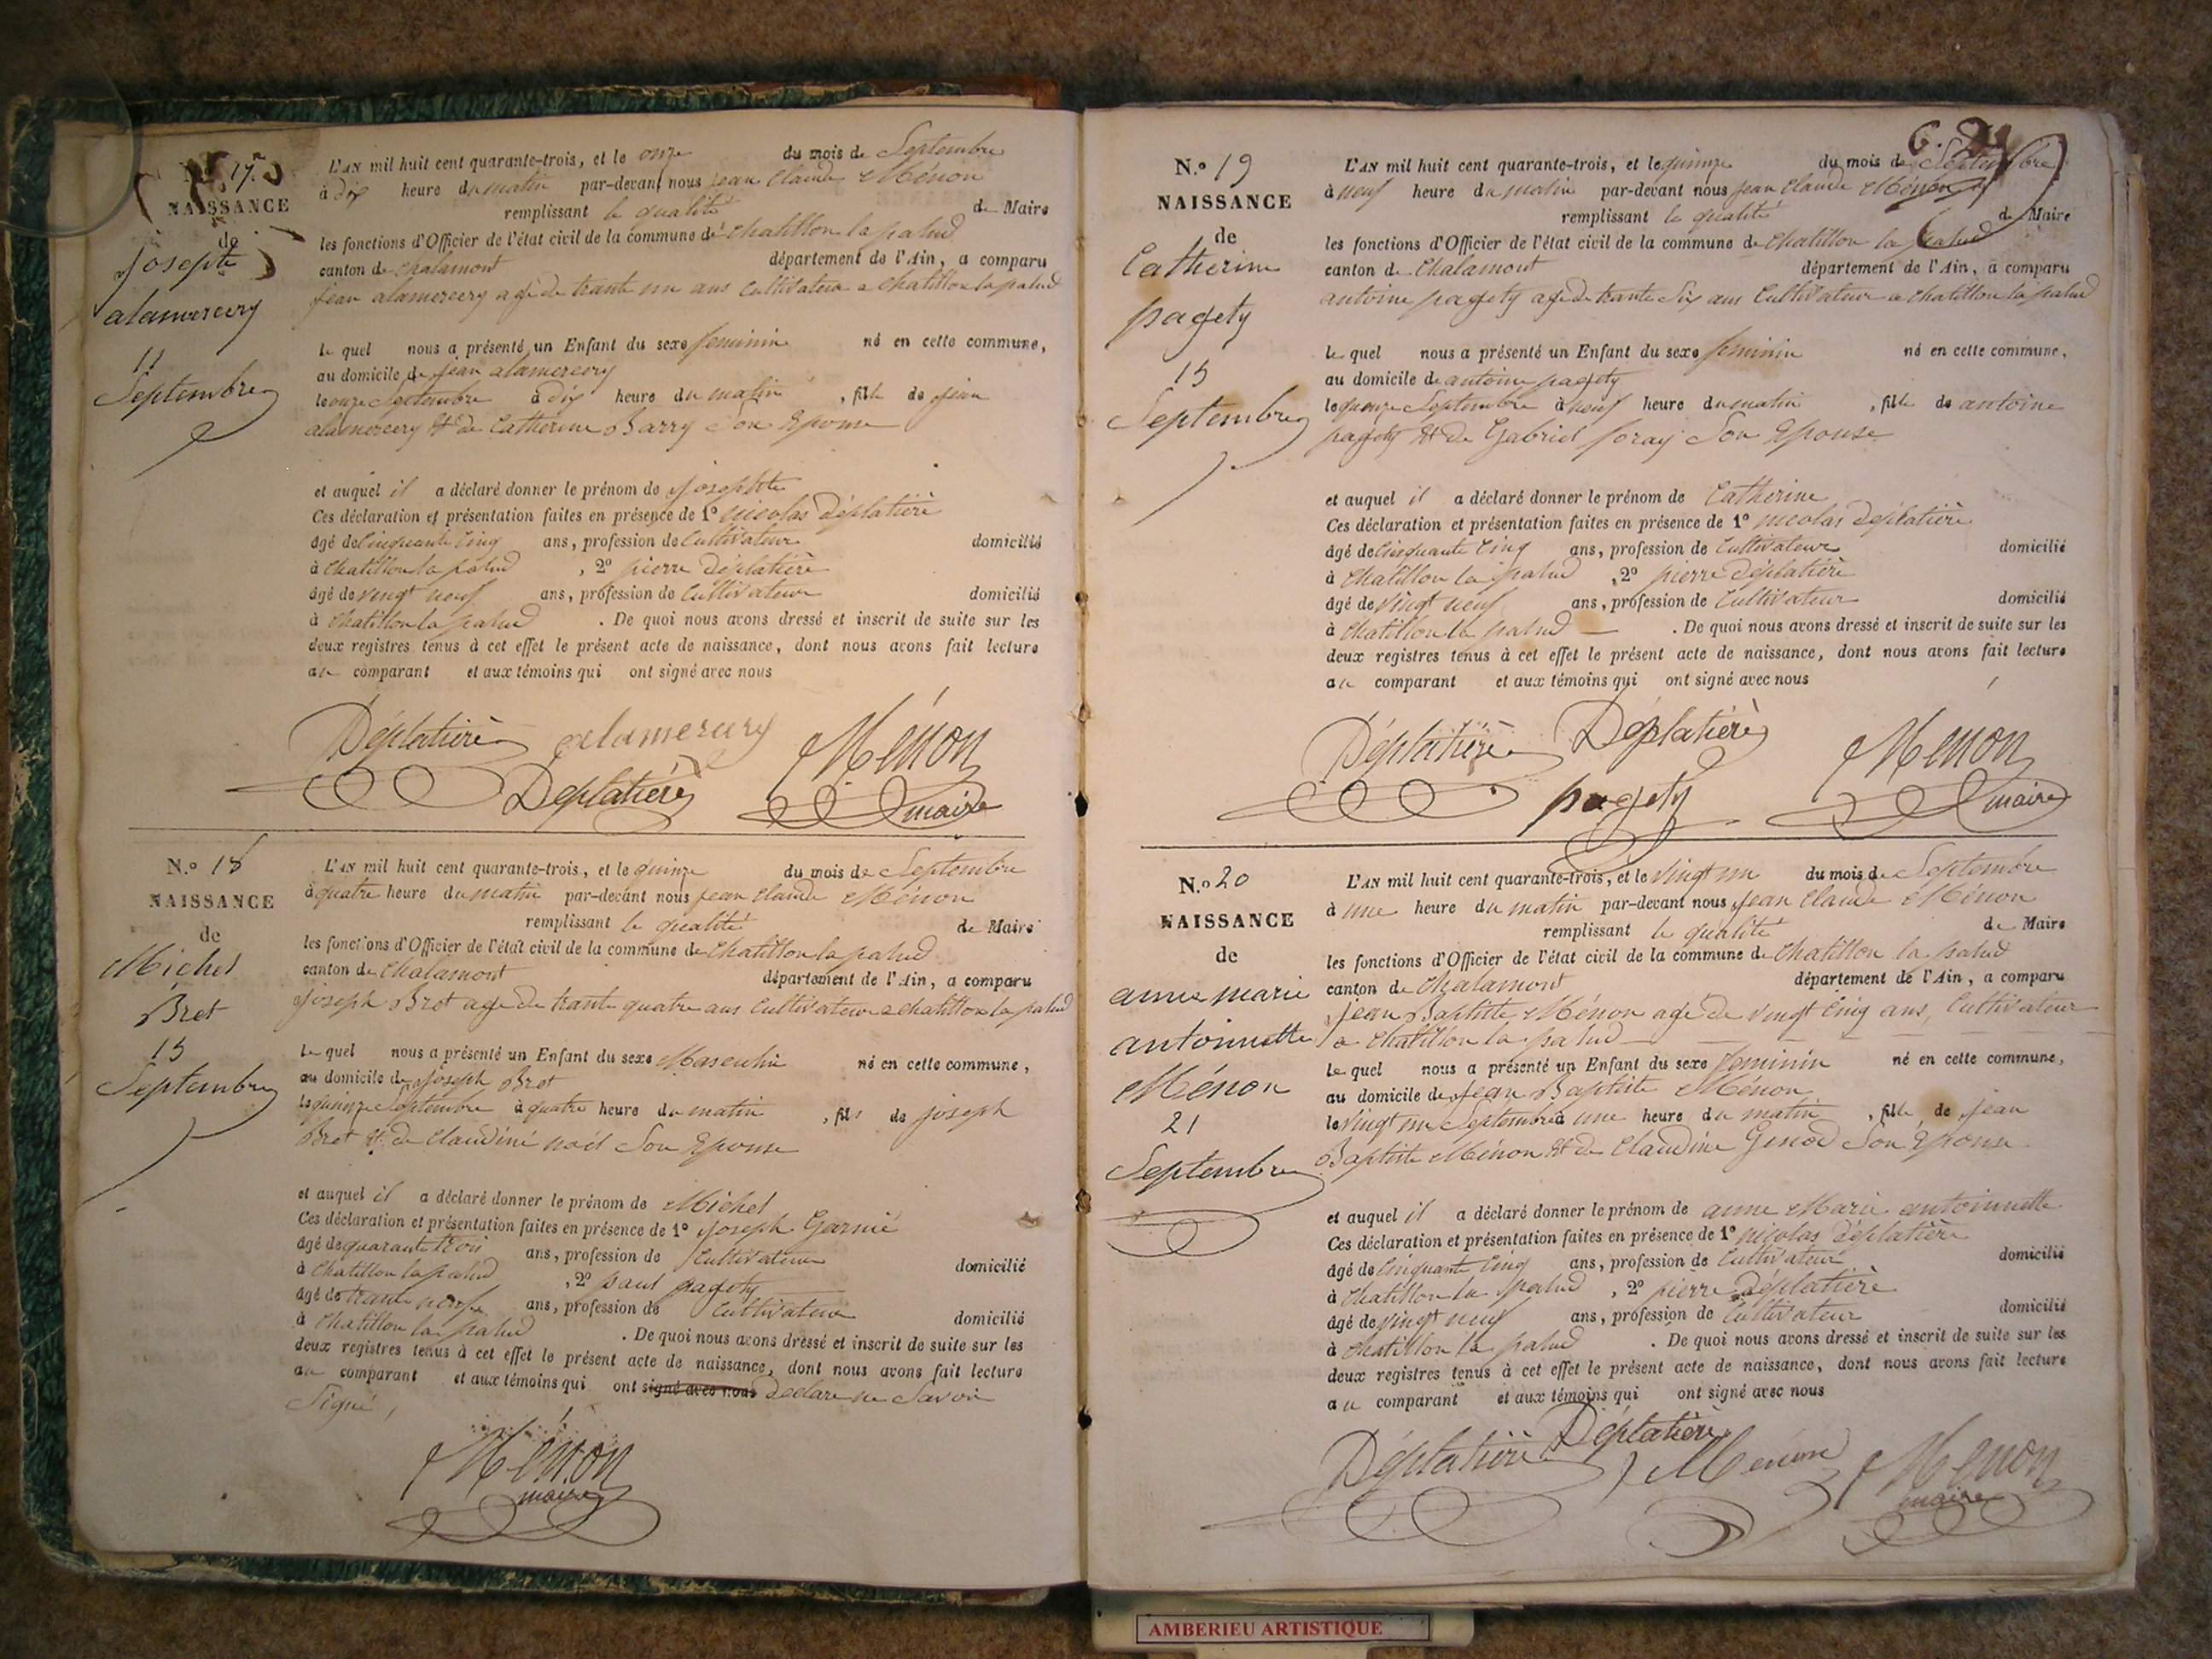 N.o 17.
NAISSANCE
de
Josephte
alamercery
11
Septembre
L'AN mil huit cent quarante-trois, et le onze du mois de Septembre
à dix heure du matin par-devant nous jean Claude Ménon
remplissant la qualité de Maire
les fonctions d'Officier de l'état civil de la commune de Chatillon la palud
canton de Chalamont département de l'Ain, a comparu
jean alamercery agé de trante un ans Cultivateur a Chatillon la palud
le quel nous a présenté un Enfant du sexe feminin né en cette commune,
au domicile de jean alamercery
le onze Septembre à dix heure du matin, fille de jean
alamercery et de Catherine Barry Son Epouse
et auquel il a déclaré donner le prénom de Josephte
Ces déclaration et présentation faites en présence de 1o nicolas Déplatière
âgé de Cinquante Cinq ans, profession de Cultivateur domicilié
à Chatillon la palud, 2o pierre Déplatière
âgé de vingt neuf ans, profession de Cultivateur domicilié
à Chatillon la palud. De quoi nous avons dressé et inscrit de suite sur les
deux registres tenus à cet effet le présent acte de naissance, dont nous avons fait lecture
au comparant et aux témoins qui ont signé avec nous
Déplatière alamercery Ménon
Deplatière maire
N.o 18
NAISSANCE
de
Michel
Bret
15
Septembre
L'AN mil huit cent quarante-trois, et le quinze du mois de Septembre
à quatre heure du matin par-devant nous jean Claude Ménon
remplissant la qualité de Maire
les fonctions d'Officier de l'état civil de la commune de Chatillon la palud
canton de Chalamont département de l'Ain, a comparu
joseph Bret agé de trante quatre ans Cultivateur a Chatillon la palud
le quel nous a présenté un Enfant du sexe Masculin né en cette commune,
au domicile de joseph Bret
le quinze Septembre à quatre heure du matin, fils de joseph
Bret et de Claudine noël Son Epouse
et auquel il a déclaré donner le prénom de Michel
Ces déclaration et présentation faites en présence de 1o joseph Garnié
âgé de quarante trois ans, profession de Cultivateur domicilié
à Chatillon la palud, 2o paul pagety
âgé de trante neuf ans, profession de Cultivateur domicilié
à Chatillon la palud. De quoi nous avons dressé et inscrit de suite sur les
deux registres tenus à cet effet le présent acte de naissance, dont nous avons fait lecture
au comparant et aux témoins qui ont signé avec nous Declare ne Savoir
Signé,
Ménon
maire
6.
N.o 19
NAISSANCE
de
Catherine
pagety
15
Septembre
L'AN mil huit cent quarante-trois, et le quinze du mois de Septembre
à neuf heure du matin par-devant nous jean Claude Ménon
remplissant la qualité de Maire
les fonctions d'Officier de l'état civil de la commune de Chatillon la palud
canton de Chalamont département de l'Ain, a comparu
antoine pagety agé de trante Six ans Cultivateur a Chatillon la palud
le quel nous a présenté un Enfant du sexe feminin né en cette commune,
au domicile de antoine pagety
le quinze Septembre à neuf heure du matin, fille de antoine
pagety et de Gabriel foray Son Epouse
et auquel il a déclaré donner le prénom de Catherine
Ces déclaration et présentation faites en présence de 1o nicolas Déplatière
âgé de Cinquante Cinq ans, profession de Cultivateur domicilié
à Chatillon la palud, 2o pierre Déplatière
âgé de vingt neuf ans, profession de Cultivateur domicilié
à Chatillon la palud. De quoi nous avons dressé et inscrit de suite sur les
deux registres tenus à cet effet le présent acte de naissance, dont nous avons fait lecture
au comparant et aux témoins qui ont signé avec nous
Déplatière Déplatière Ménon
pagety maire
N.o 20
NAISSANCE
de
anne marie
antoinette
Ménon
21
Septembre
L'AN mil huit cent quarante-trois, et le vingt un du mois de Septembre
à une heure du matin par-devant nous jean Claude Ménon
remplissant la qualité de Maire
les fonctions d'Officier de l'état civil de la commune de Chatillon la palud
canton de Chalamont département de l'Ain, a comparu
jean Baptiste Ménon agé de vingt Cinq ans, Cultivateur
a Chatillon la palud
le quel nous a présenté un Enfant du sexe feminin né en cette commune,
au domicile de jean Baptiste Ménon
le vingt un Septembre à une heure du matin, fille de jean
Baptiste Ménon et de Claudine Genod Son Epouse
et auquel il a déclaré donner le prénom de anne Marie antoinette
Ces déclaration et présentation faites en présence de 1o nicolas Déplatière
âgé de Cinquante Cinq ans, profession de Cultivateur domicilié
à Chatillon la palud, 2o pierre Déplatière
âgé de vingt neuf ans, profession de Cultivateur domicilié
à Chatillon la palud. De quoi nous avons dressé et inscrit de suite sur les
deux registres tenus à cet effet le présent acte de naissance, dont nous avons fait lecture
au comparant et aux témoins qui ont signé avec nous
Déplatière Déplatière Menon Menon
maire
AMBERIEU ARTISTIQUE